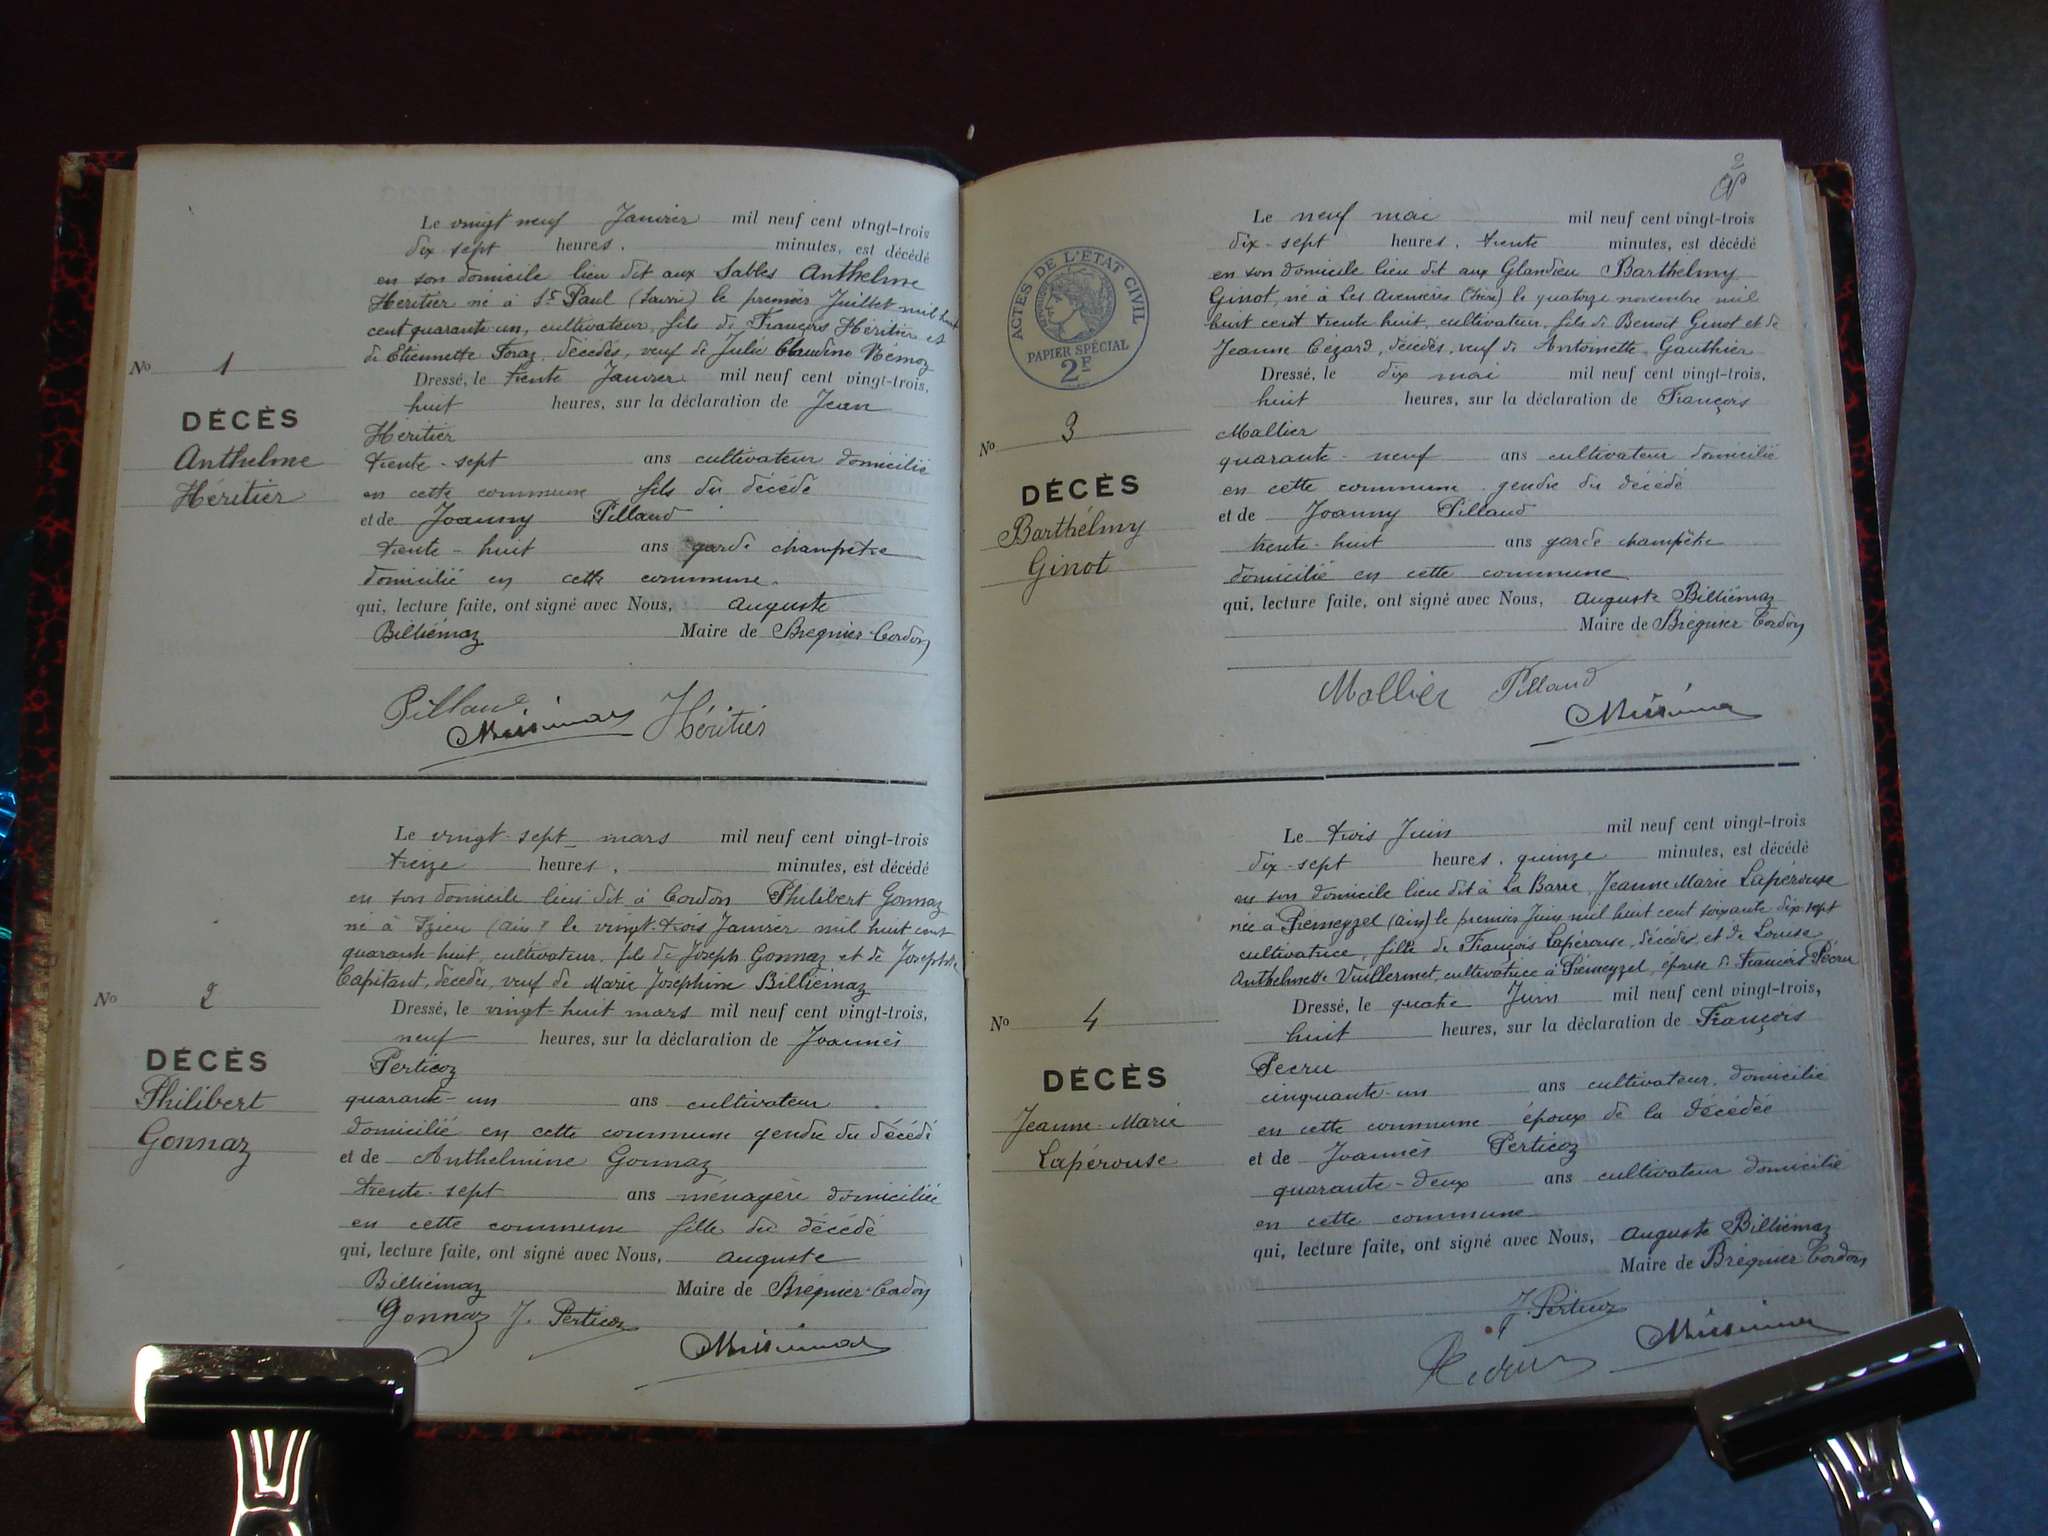 Le vingt neuf Janvier mil neuf cent vingt-trois
dix sept heures, minutes, est décédé
en son domicile lieu dit aux Sables Anthelme
Héritier né à St Paul le premier Juillet mil huit
cent quarante un, cultivateur, fils de François Héritier et
de Etiennette Foraz, décédés, veuf de Julie Claudine
No 1
DÉCÈS
Anthelme
Héritier
Dressé, le trente Janvier mil neuf cent vingt-trois,
huit heures, sur la déclaration de Jean
Héritier
trente-sept ans cultivateur domicilié
en cette commune fils du décédé
et de Joanny Pillaud
trente-huit ans garde champêtre
domicilié en cette commune.
qui, lecture faite, ont signé avec Nous, Auguste
Billiémaz Maire de Brégnier-Cordon
Pillaud
Héritier
Le vingt-sept mars mil neuf cent vingt-trois
treize heures, minutes, est décédé
en son domicile lieu dit à Cordon Philibert Gonnaz
né à Izieu (Ain) le vingt-trois Janvier mil huit cent
quarante huit, cultivateur, fils de Joseph Gonnaz et de Josephte
Capitant, décédés, veuf de Marie Josephine Billiémaz
No 2
DÉCÈS
Philibert
Gonnaz
Dressé, le vingt-huit mars mil neuf cent vingt-trois,
neuf heures, sur la déclaration de Joannès
Perticoz
quarante-un ans cultivateur
domicilié en cette commune gendre du décédé
et de Anthelmine Gonnaz
trente-sept ans ménagère domiciliée
en cette commune fille du décédé
qui, lecture faite, ont signé avec Nous, Auguste
Billiémaz Maire de Brégnier-Cordon
Gonnaz J. Perticoz
2
ACTES DE L'ETAT CIVIL
PAPIER SPÉCIAL
2F
Le neuf mai mil neuf cent vingt-trois
dix-sept heures, trente minutes, est décédé
en son domicile lieu dit aux Glandieu Barthélmy
Ginot, né à Les Avenières (Isère) le quatorze novembre mil
huit cent trente huit, cultivateur, fils de Benoit Ginot et de
Jeanne Cézard, décédés, veuf de Antoinette Gauthier
No 3
DÉCÈS
Barthélmy
Ginot
Dressé, le dix mai mil neuf cent vingt-trois,
huit heures, sur la déclaration de François
Mallier
quarante-neuf ans cultivateur domicilié
en cette commune gendre du décédé
et de Joanny Pillaud
trente-huit ans garde-champêtre
domicilié en cette commune
qui, lecture faite, ont signé avec Nous, Auguste Billiémaz
Maire de Brégnier-Cordon
Mallier Pillaud
Le trois Juin mil neuf cent vingt-trois
dix-sept heures, quinze minutes, est décédé
en son domicile lieu dit à La Barre, Jeanne Marie Lapérouse
née à Prémeyzel (Ain) le premier Juin mil huit cent soixante-dix-sept
cultivatrice, fille de François Lapérouse, décédé, et de Louise
Anthelmette Vuillermet, cultivatrice à Prémeyzel, épouse de François Pécru
No 4
DÉCÈS
Jeanne-Marie
Lapérouse
Dressé, le quatre Juin mil neuf cent vingt-trois,
huit heures, sur la déclaration de François
Pecru
cinquante-un ans cultivateur, domicilié
en cette commune époux de la décédée
et de Joannès Perticoz
quarante-deux ans cultivateur domicilié
en cette commune
qui, lecture faite, ont signé avec Nous, Auguste Billiémaz
Maire de Brégnier Cordon
J. Perticoz